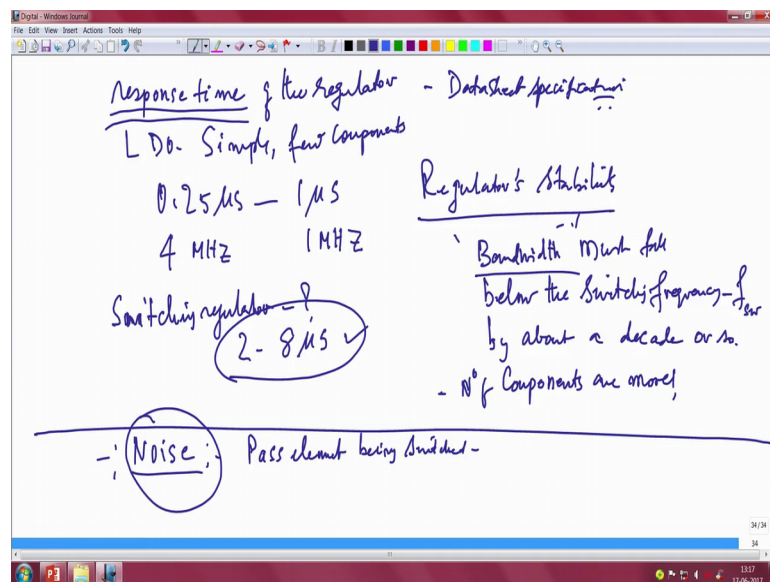 Digital - Windows Journal
File Edit View Insert Actions Tools Help
response time of the regulator - Datasheet specification
LDO. Simple, few components
0.25 μs - 1 μs
4 MHZ 1 MHZ
Switching regulator - ?
2 - 8 μs ✓
Regulator's Stability
Bandwidth must fall
below the switching frequency - fsw
by about a decade or so.
- No of Components are more,
Noise - Pass element being switched -
34/34
34
13:17
17-06-2017